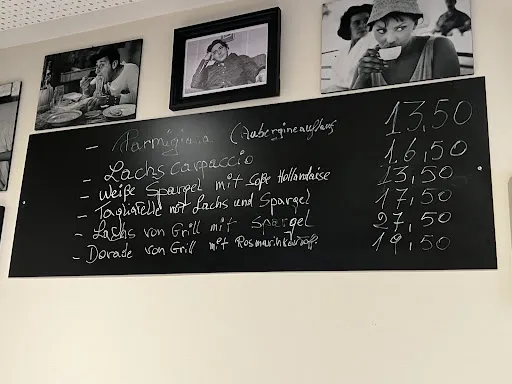 - Parmigiana (Auberginenauflauf 13,50
- Lachscarpaccio 16,50
- Weiße Spargel mit Soße Hollandaise 13,50
- Tagliatelle mit Lachs und Spargel 17,50
- Lachs von Grill mit Spargel 27,50
- Dorade von Grill mit Rosmarinkartoff. 19,50